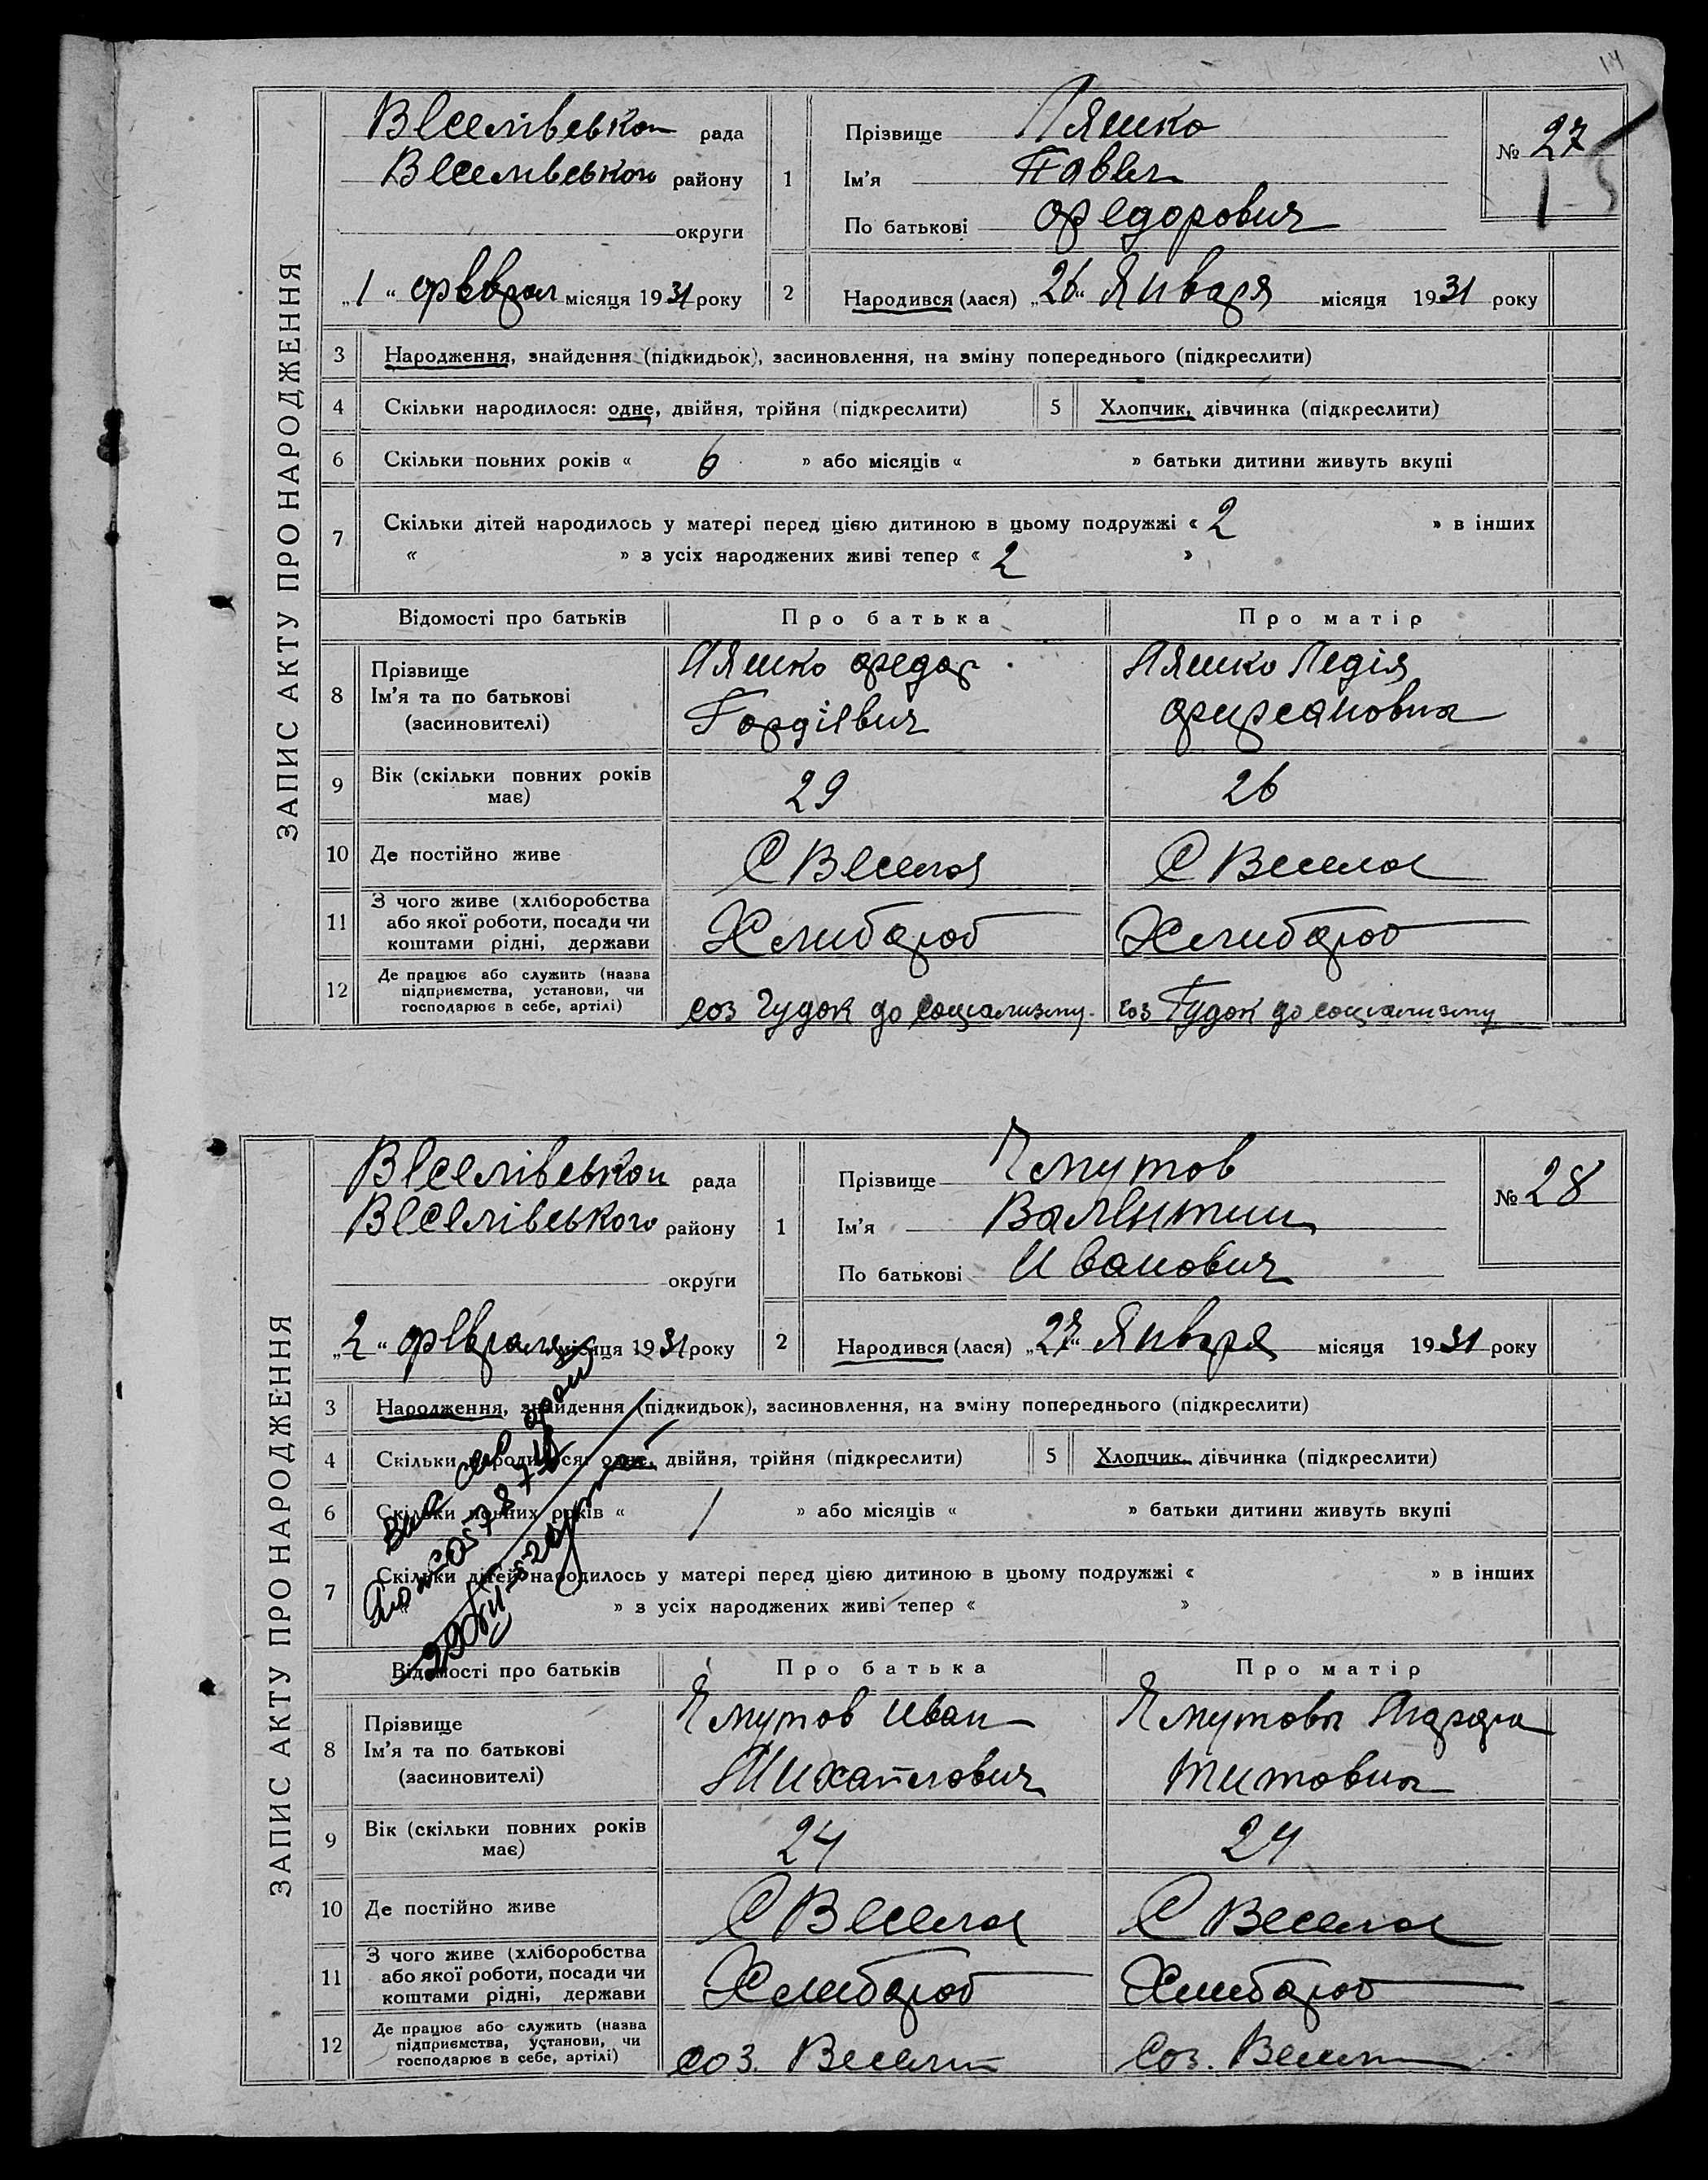 14
ЗАПИС АКТУ ПРО НАРОДЖЕННЯ
Веселівської рада
Веселівського району
округи
„1“ феврал місяця 1931 року
1 Прізвище Ляшко
Ім'я Павел
По батькові Федорович
№ 27
15
2 Народився (лася) „26“ Января місяця 1931 року
3 Народження, знайдення (підкидьок), засиновлення, на зміну попереднього (підкреслити)
4 Скільки народилося: одне, двійня, трійня (підкреслити) 5 Хлопчик, дівчинка (підкреслити)
6 Скільки повних років « 6 » або місяців « » батьки дитини живуть вкупі
7 Скільки дітей народилось у матері перед цією дитиною в цьому подружжі « 2 » в інших
« » з усіх народжених живі тепер « 2 »
Відомості про батьків Про батька Про матір
8 Прізвище Ім'я та по батькові (засиновителі)
Ляшко Федор Гордієвич
Ляшко Лидія
9 Вік (скільки повних років має) 29 26
10 Де постійно живе С Весела С Весела
11 З чого живе (хліборобства або якої роботи, посади чи коштами рідні, держави Хлибороб Хлибороб
12 Де працює або служить (назва підприємства, установи, чи господарює в себе, артілі) Соз Гудок до социализму Соз Гудок до социализму
ЗАПИС АКТУ ПРО НАРОДЖЕННЯ
Веселівської рада
Веселівського району
округи
„2“ февраля місяця 1931 року
1 Прізвище Чмутов
Ім'я Валентин
По батькові Иванович
№ 28
2 Народився (лася) „27“ Января місяця 1931 року
3 Народження, знайдення (підкидьок), засиновлення, на зміну попереднього (підкреслити)
4 Скільки народилося: одне, двійня, трійня (підкреслити) 5 Хлопчик, дівчинка (підкреслити)
6 Скільки повних років « 1 » або місяців « » батьки дитини живуть вкупі
7 Скільки дітей народилось у матері перед цією дитиною в цьому подружжі « » в інших
« » з усіх народжених живі тепер « »
Відомості про батьків Про батька Про матір
8 Прізвище Ім'я та по батькові (засиновителі)
Чмутов Иван Михайлович
Чмутова Титовна
9 Вік (скільки повних років має) 24 24
10 Де постійно живе С Весела С Весела
11 З чого живе (хліборобства або якої роботи, посади чи коштами рідні, держави Хлибороб Хлибороб
12 Де працює або служить (назва підприємства, установи, чи господарює в себе, артілі) соз. Соз.